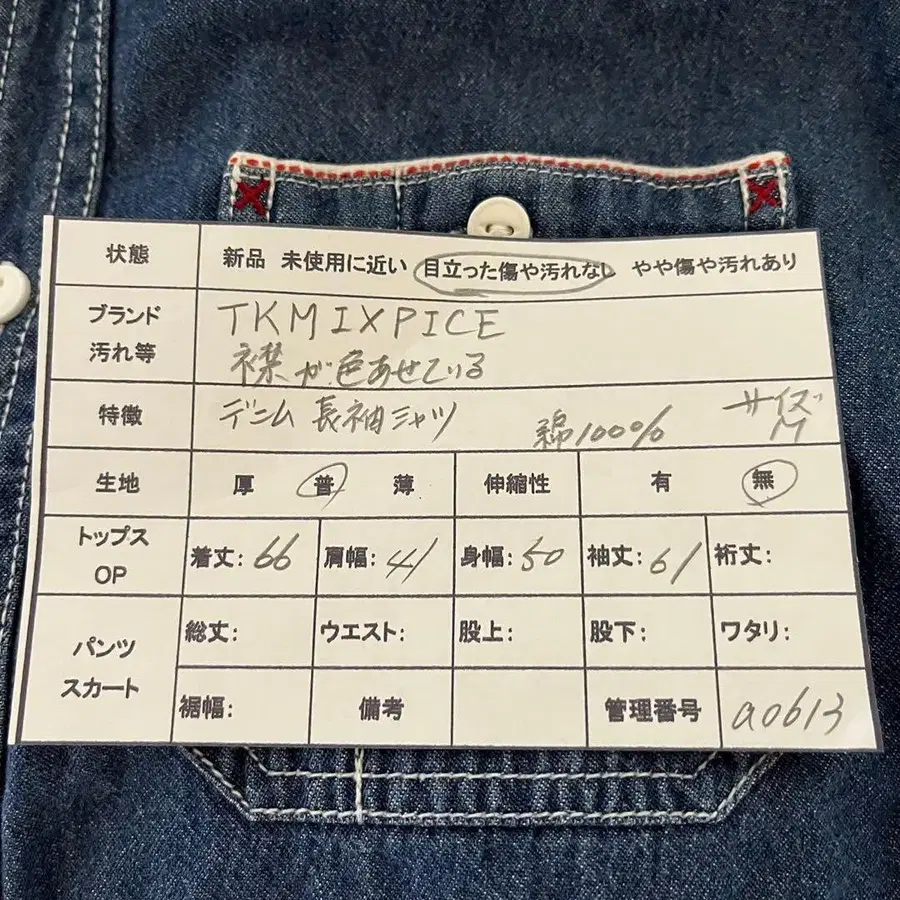 状態 新品 未使用に近い 目立った傷や汚れなし やや傷や汚れあり
ブランド TKMIXPICE
汚れ等 襟が色あせている
特徴 デニム 長袖シャツ 綿100% サイズ M
生地 厚 普 薄 伸縮性 有 無
トップス OP 着丈:66 肩幅:41 身幅:50 袖丈:61 裄丈:
パンツ スカート 総丈: ウエスト: 股上: 股下: ワタリ:
裾幅: 備考 管理番号 a0613